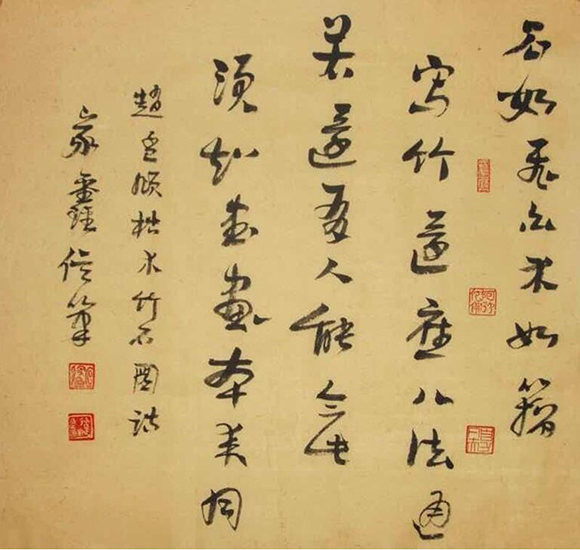 石如飛白木如籀
寫竹還應八法通
若還有人能會此
須知書畫本來同
趙孟頫枯木竹石圖詩
家 筆